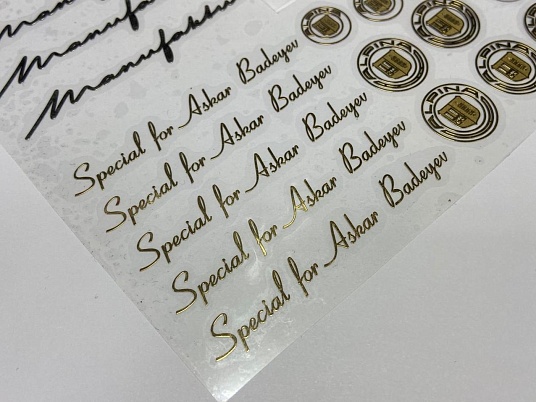 Manufaktur
Manufaktur
Special for Askar Badeyev
Special for Askar Badeyev
Special for Askar Badeyev
Special for Askar Badeyev
Special for Askar Badeyev
ALPINA
ALPINA
ALPINA